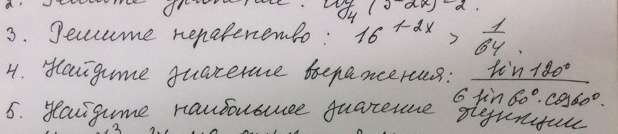 2. Решите уравнение: log₄(5-2x)=2.
3. Решите неравенство: 16^(1-2x) > 1/64.
4. Найдите значение выражения: sin120°/(6 sin60°·cos60°.
5. Найдите наибольшее значение функции